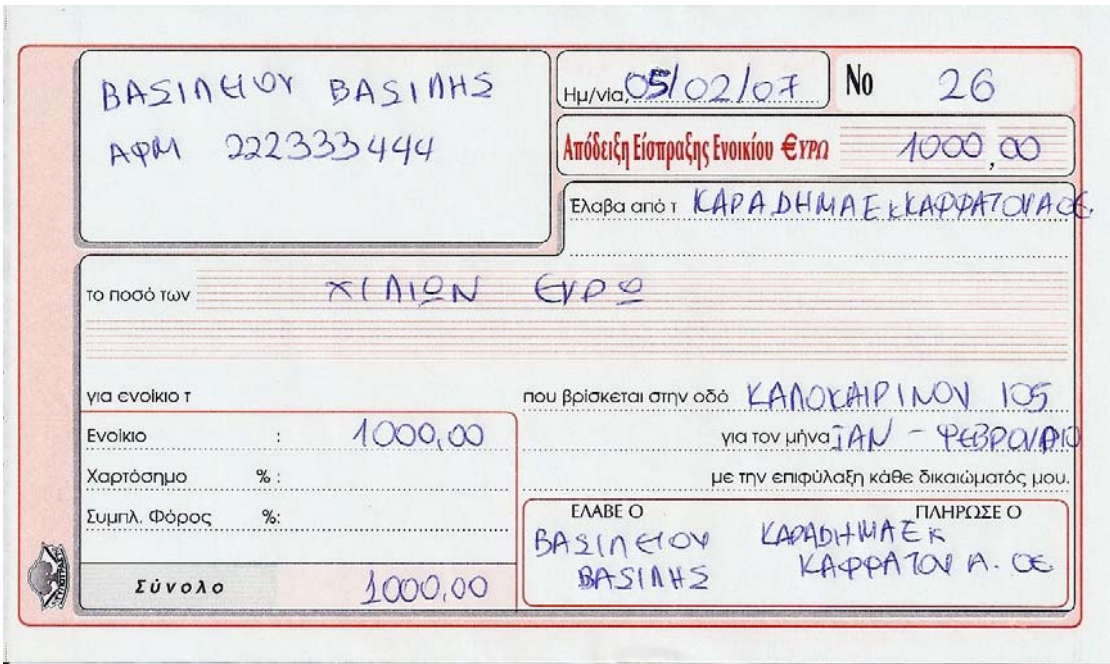 ΒΑΣΙΛΕΙΟΥ ΒΑΣΙΛΗΣ
ΑΦΜ 222333444
Ημ/νία, 05/02/07
Νο 26
Απόδειξη Είσπραξης Ενοικίου €ΥΡΩ 1000,00
Έλαβα από τ ΚΑΡΑΔΗΜΑ Ε κ ΚΑΦΦΑΤΟΥ Α ΟΕ.
το ποσό των ΧΙΛΙΩΝ ΕΥΡΩ
για ενοίκιο τ
που βρίσκεται στην οδό ΚΑΛΟΚΑΙΡΙΝΟΥ 105
Ενοίκιο : 1000,00
για τον μήνα ΙΑΝ - ΦΕΒΡΟΥΑΡΙΟ
Χαρτόσημο % :
με την επιφύλαξη κάθε δικαιώματός μου.
Συμπλ. Φόρος %:
Σύνολο 1000,00
ΕΛΑΒΕ Ο
ΒΑΣΙΛΕΙΟΥ
ΒΑΣΙΛΗΣ
ΠΛΗΡΩΣΕ Ο
ΚΑΡΑΔΗΜΑ Ε κ
ΚΑΦΦΑΤΟΥ Α. ΟΕ